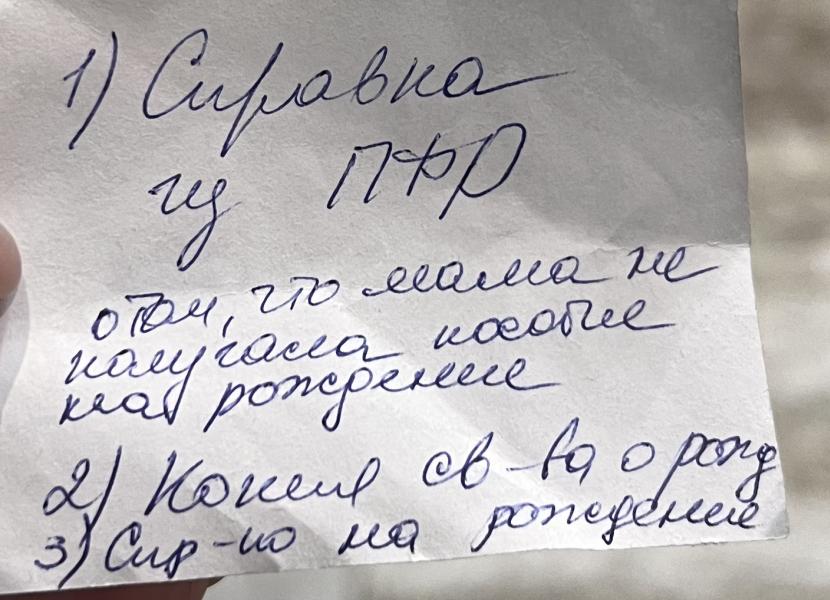 1) Справка
из ПФР
о том, что мама не
получала пособие
на рождение
2) Копия св-ва о рожд
3) Спр-ка на рождение